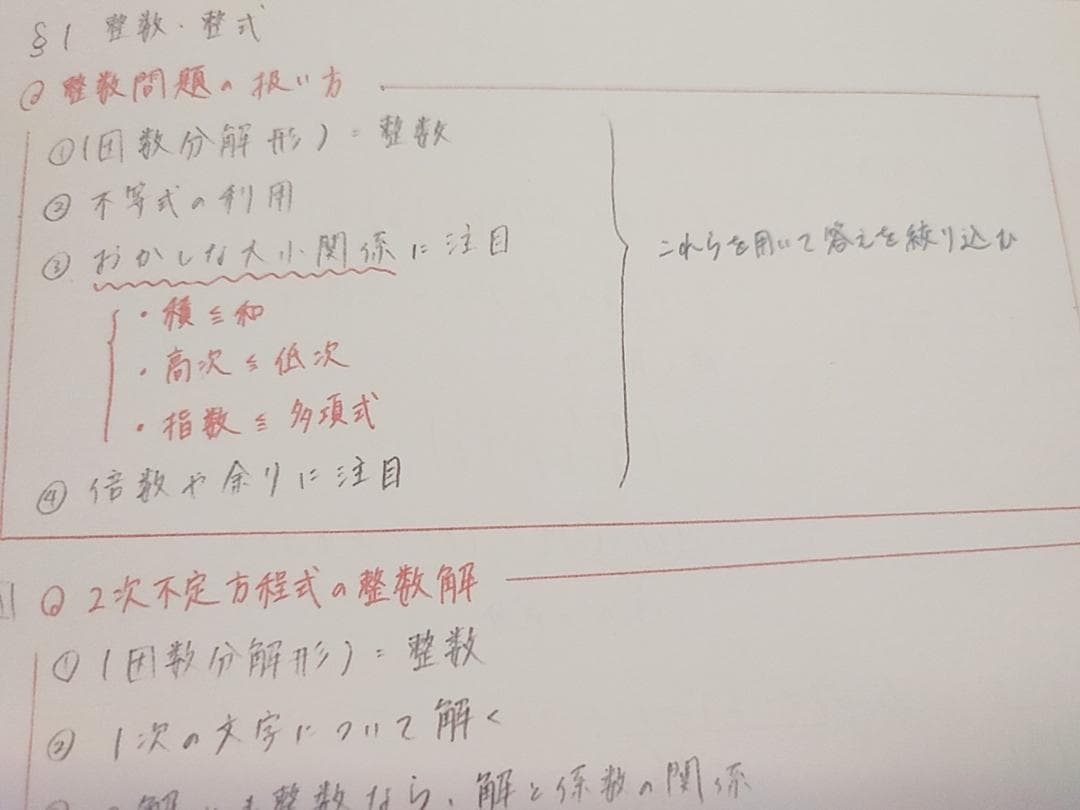 §1 整数・整式
整数問題の扱い方
① (因数分解形) = 整数
② 不等式の利用
③ おかしな大小関係に注目
・積 ≦ 和
・高次 ≦ 低次
・指数 ≦ 多項式
④ 倍数や余りに注目
これらを用いて答えを絞り込む
2次不定方程式の整数解
① (因数分解形) = 整数
② 1次の文字について解く
整数なら、解と係数の関係